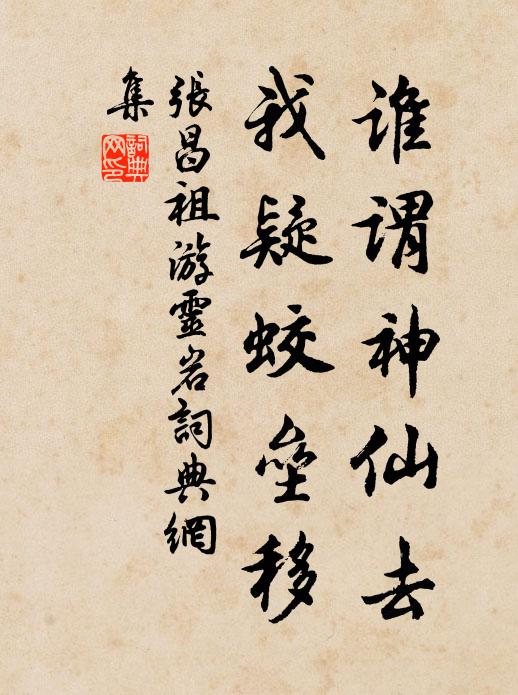 谁謂神仙去
我疑蛟垒移
張昌祖游靈岩詞典網
集
詞典
网印